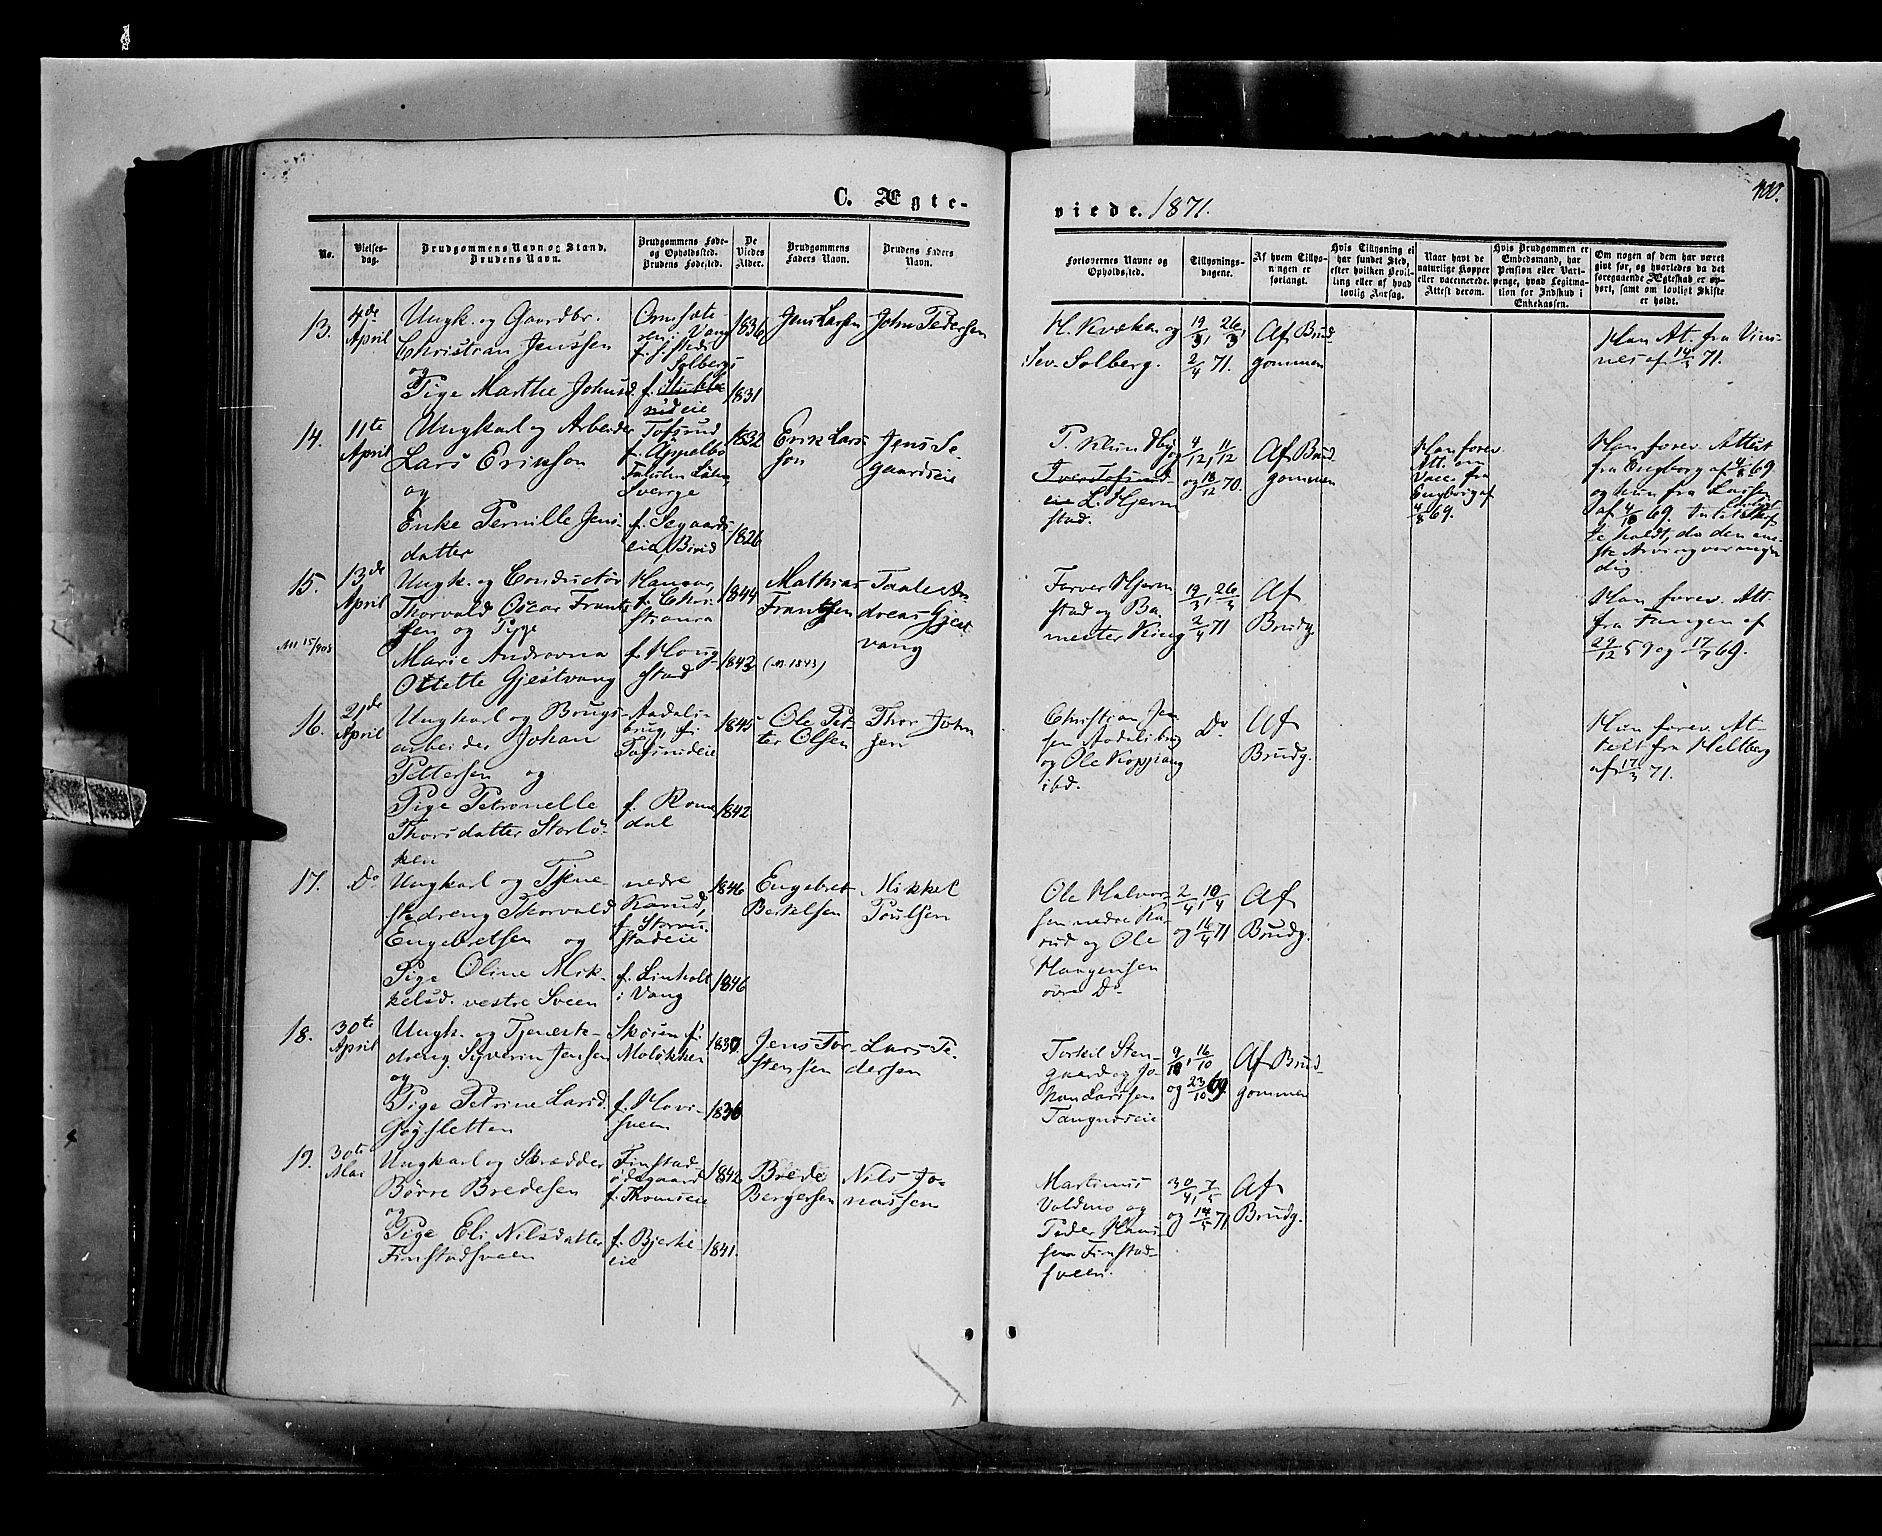 C. Ægte-
viede. 1871.
400.
No.
Vielses-
dag.
Brudgommens Navn og Stand,
Brudens Navn.
Brudgommens Føde-
og Opholdssted.
Brudens Fødested.
De
Viedes
Alder.
Brudgommens
Faders Navn.
Brudens Faders
Navn.
Forlovernes Navne og
Opholdssted.
Tillysnings-
dagene.
Af hvem Tillys-
ningen er
forlangt.
Hvis Tillysning ei
har fundet Sted,
efter hvilken Bevil-
ling eller af hvad
lovlig Aarsag.
Naar havt de
naturlige Kopper
eller vaccinerede.
Attest derom.
Hvis Brudgommen er
Embedsmand, har
Pension eller Vart-
penge, hvad Legitima-
tion for Indskud i
Enkekassen.
Om nogen af dem har været
gift før, og hvorledes da det
foregaaende Ægteskab er op-
hørt, samt om lovligt Skifte
er holdt.
13.
4de
April
Ungk. og Gaardbr.
Christian Jenssen
og
Pige Marthe Johnsd.
i Vang
Solberg
1836
f.
eie
1831
Jens Larsen
John Pedersen
H. Kvæka og
Sev. Solberg.
19/3, 26/3,
2/4 71.
Af Brud
gommen
Han At. fra
nes af 14/3 71.
14.
11te
April
Ungkarl og Arbeider
Lars Erikson
og
Enke Pernille Jens-
datter
Tofsrud
f. Äppelbo
Sverrge
1832
f. Segaards
eie,
1826
Erik Lars
son
Jens Se
gaardseie
P. Klundby og
L. Hjerm
stad.
4/12, 11/12
og 18/12 70.
Af Brud
gommen
Han forev.
Att. om
Vacc. fra
Engborg af
4/8 69.
Han forev. Attest
fra Engborg af 4/8 69
og hun fra
af 4/10 69.
holdt, da den en-
ste Arving var myn
dig
15.
13de
April
Ungk. og Conductør
Thorvald Oscar Frantz
sen og Pige
Marie Androvna
Ottette Gjestvang
Hamar,
f. Chri
stiania
1844
f. Houg
stad
1843
(m 1843)
Mathias
Frantzen
Taale An
dreas Gjest
vang
Farver Hjerm
stad og Ba
mester Ring
19/3, 26/3
2/4 71
Af
Brudg.
Han forev. Att.
fra Fangen af
29/12 59 og 17/7 69.
16.
21de
April
Ungkarl og Brugs-
arbeider Johan
Pettersen og
Pige Petronelle
Thorsdatter Storlø-
ken
Aadals-
brug, f.
Tofsrudeie
1845
f. Rome
dal
1842
Ole Pet-
ter Olsen
Thor John
sen
Christian Jen
sen Aadalsbrug
og Ole Koppang
ibd.
Do
Af
Brudg.
Hun forev. At-
test fra Helberg
af 17/3 71.
17.
Do
Ungkarl og Tjene-
stedreng Thorvald
Engebretsen og
Pige Oline Mik-
kelsd. vestre Sveen
nedre
Karud,
f.
stadeie
1846
f. Linholt
i Vang
1846
Engebret
Bertelsen
Mikkel
Poulsen
Ole Halvor
sen nedre Ka-
rud og Ole
Haagensen
øvre Do
2/4, 10/4
og 16/4 71
Af
Brudg.
18.
30te
April
Ungk. og Tjeneste-
dreng Syverin Jensen
og
Pige Petrine Larsd.
Gogsletten
Skøien f.
Moløkken
1830
f. Hovi-
sveen
1836
Jens Tor-
stensen
Lars Pe-
dersen
Torkil Sten-
gaard og Jo-
han Larssen
Tangnæseie
9/10, 16/10
og 23/10 69.
Af Brud-
gommen
19.
30te
Mai
Ungkarl og Skrædder
Børre Bredesen
og
Pige Eli Nilsdatter
Finstadsveen
Finstad-
ødegaard
f. Thomseie
1842
f. Bjerke-
eie
1841
Brede
Bergersen
Nils Jo-
nassen
Martinus
Voldmo og
Peder Hans-
sen Finstad-
sveen.
30/4, 7/5
og 14/5 71
Af
Brudg.